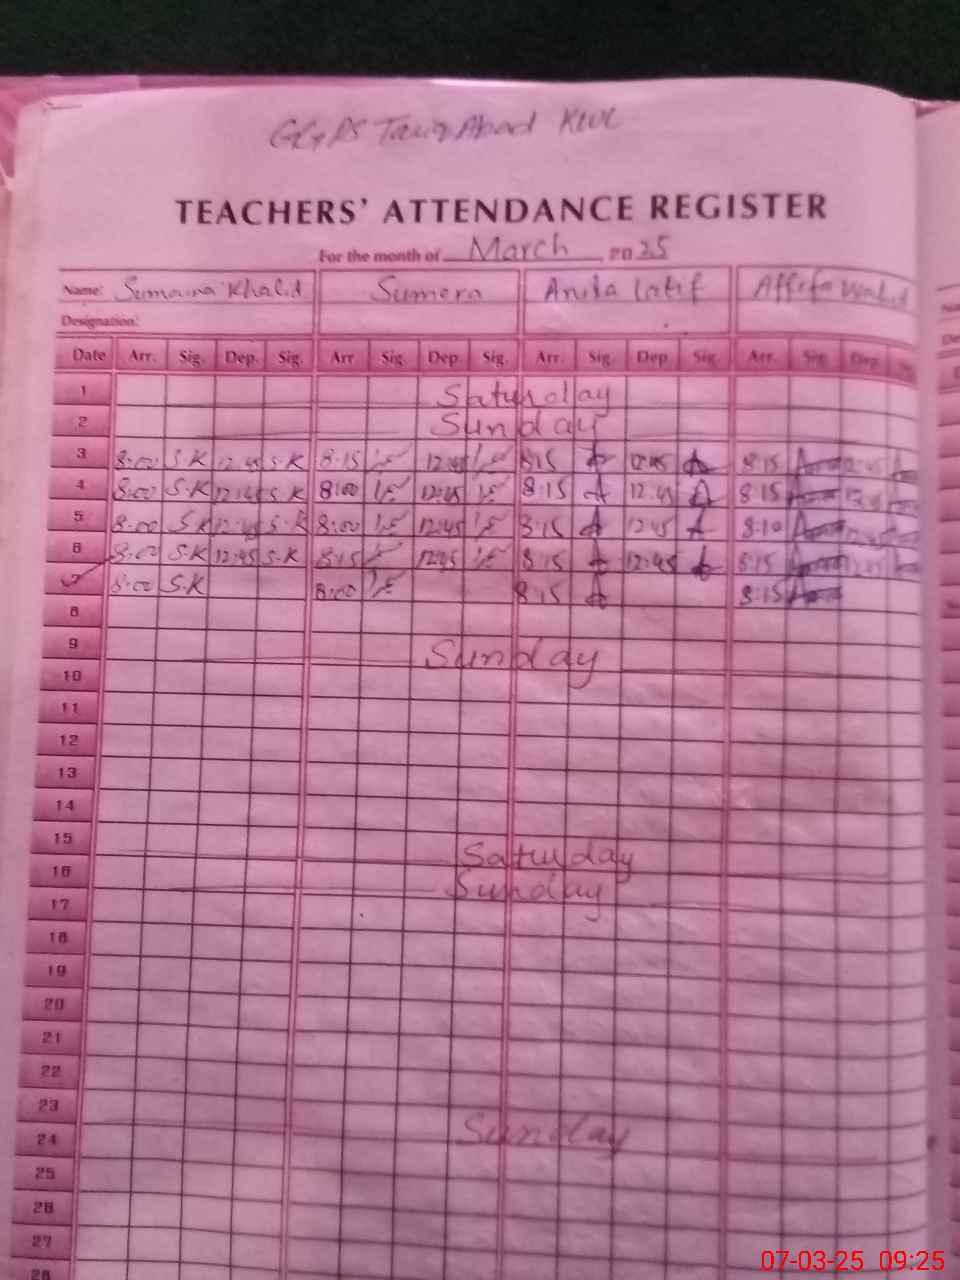 GGPS Tariq Abad KWL
TEACHERS' ATTENDANCE REGISTER
For the month of March 2025
Name: Sumaira Khalid Sumera Anila Latif Affifa Walid
Designation:
Date Arr. Sig. Dep. Sig. Arr Sig. Dep. Sig. Arr. Sig. Dep. Sig. Arr. Sig. Dep.
1 Saturday
2 Sunday
3 8:00 S.K 12:45 S.K 8:15 12:45 8:15 12:45 8:15 12:45
4 8:00 S.K 12:45 S.K 8:00 12:45 8:15 12:45 8:15 12:45
5 8:00 S.K 12:45 S.K 8:00 12:45 8:15 12:45 8:10 12:45
6 8:00 S.K 12:45 S.K 8:15 12:45 8:15 12:45 8:15 12:45
7 8:00 S.K 8:00 8:15 8:15
8
9 Sunday
10
11
12
13
14
15 Saturday
16 Sunday
17
18
19
20
21
22
23 Sunday
24
25
26
27
28
07-03-25 09:25